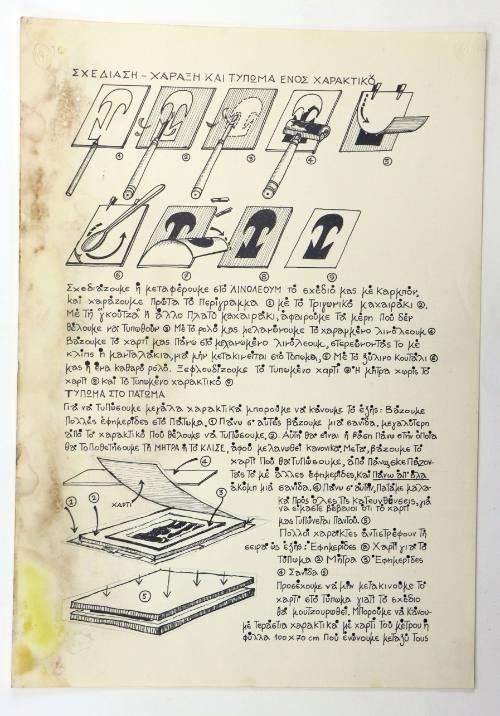 ΣΧΕΔΙΑΣΗ – ΧΑΡΑΞΗ ΚΑΙ ΤΥΠΩΜΑ ΕΝΟΣ ΧΑΡΑΚΤΙΚΟΥ
① ② ③ ④ ⑤
⑥ ⑦ ⑧ ⑨
Σχεδιάζουμε ή μεταφέρουμε στο ΛΙΝΟΛΕΟΥΜ το σχέδιό μας με Καρμπόν,
και χαράζουμε πρώτα το περίγραμμα ① με το Τριγωνικό μαχαιράκι ②.
Με τη γκούτζα ή άλλο πλατύ μαχαιράκι, αφαιρούμε τα μέρη που δεν
θέλουμε να Τυπωθούν ③ Με το ρολό μας μελανώνουμε το χαραγμένο λινόλεουμ ④
Βάζουμε το χαρτί μας πάνω στο μελανωμένο λινόλεουμ, στερεώνοντάς το με
κλιπς ή μανταλάκια, να μην μετακινείται στο Τύπωμα, ⑤ Με το ξύλινο κουτάλι ⑥
μας ή ένα καθαρό ρολό. Ξεφλουδίζουμε το Τυπωμένο χαρτί ⑦ Η μήτρα χωρίς το
χαρτί ⑧ και το Τυπωμένο χαρακτικό ⑨
ΤΥΠΩΜΑ ΣΤΟ ΠΑΤΩΜΑ
Για να Τυπώσουμε μεγάλα χαρακτικά μπορούμε να κάνουμε το εξής: Βάζουμε
πολλές εφημερίδες στο πάτωμα. ① Πάνω σ' αυτές βάζουμε μια σανίδα, μεγαλύτερη
από το χαρακτικό που θέλουμε να Τυπώσουμε, ②. Αυτή θα είναι η βάση πάνω στην οποία
θα τοποθετήσουμε ΤΗ ΜΗΤΡΑ ή ΤΟ ΚΛΙΣΕ, αφού μελανωθεί κανονικά. Μετά, βάζουμε το
χαρτί που θα Τυπώσουμε, από πάνω σκεπάζον-
τάς το με άλλες εφημερίδες, και πάνω απ' όλα
ακόμη μια σανίδα. ④ Πάνω σ' αυτήν, πατάμε μαλα-
κά προς όλες τις κατευθύνσεις, για
να είμαστε βέβαιοι ότι το χαρτί
μας Τυπώνεται παντού. ⑤
Πολλοί χαράκτες αντιστρέφουν τη
σειρά ως εξής: Εφημερίδες ① Χαρτί για το
Τύπωμα ② Μήτρα ③ Εφημερίδες
④ Σανίδα ⑤
Προσέχουμε να μην μετακινούμε το
χαρτί στο Τύπωμα γιατί το σχέδιο
θα μουτζουρωθεί. Μπορούμε να κάνου-
με τεράστια χαρακτικά με χαρτί του μέτρου ή
φύλλα 100x70 cm που ενώνουμε μεταξύ τους
① ② ΧΑΡΤΙ ③ ④
⑤